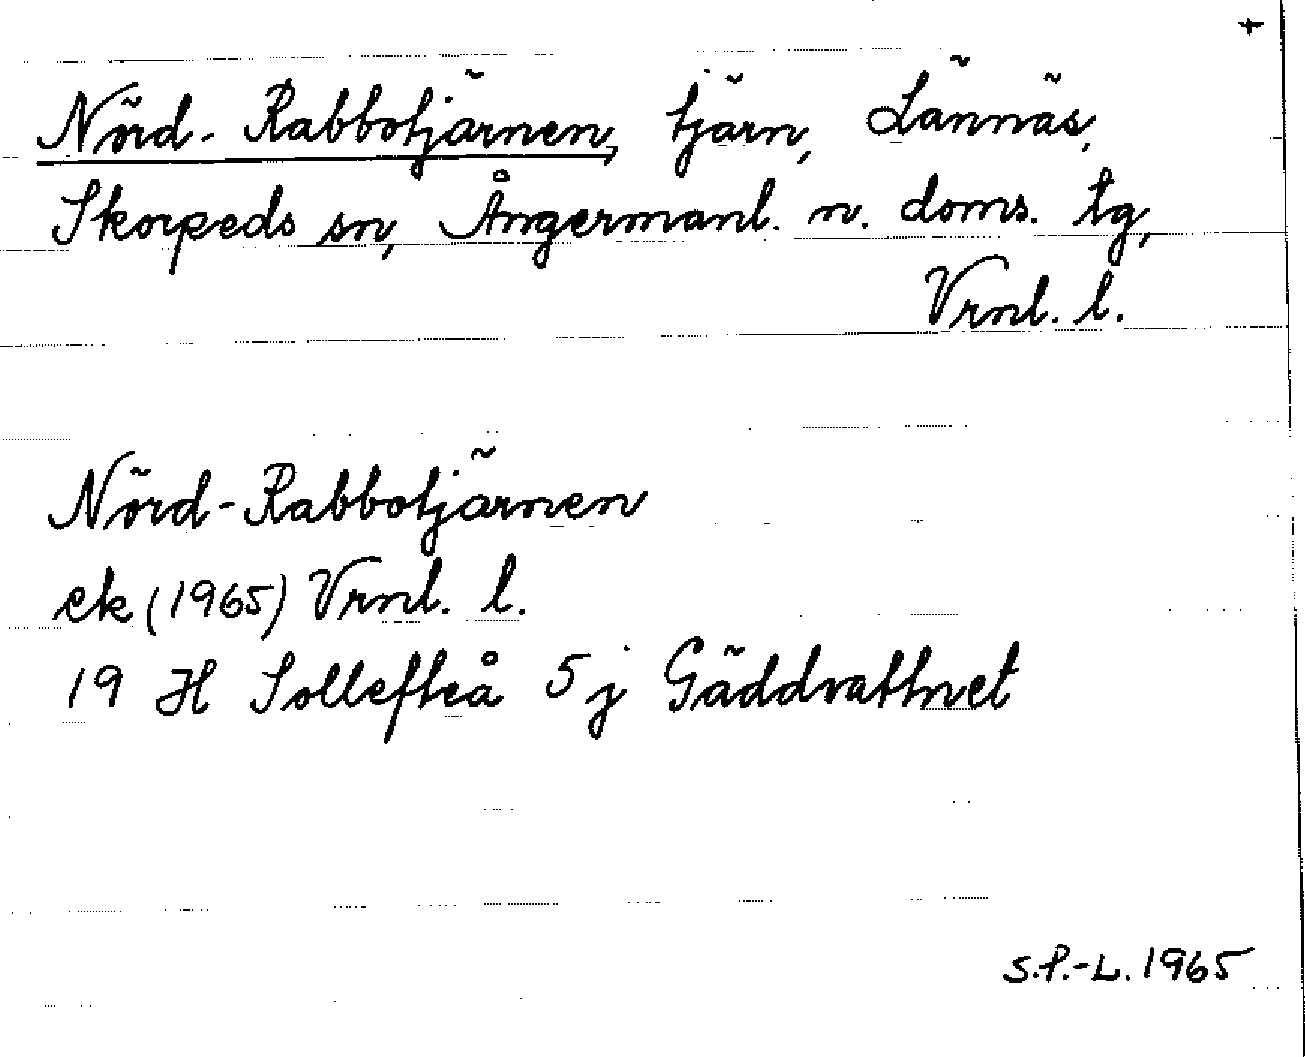 +
Nörd-Rabbotjärnen, tjärn, Lännäs,
Skorpeds sn, Ångermanl. n. doms. tg,
Vrnl. l.
Nörd-Rabbotjärnen
ek (1965) Vrnl. l.
19 H Sollefteå 5 j Gäddvattnet
S.P.-L. 1965